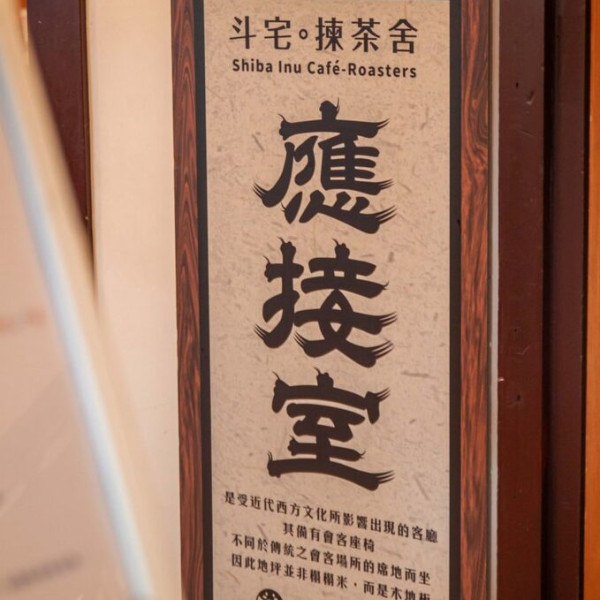 斗宅。揀茶舍
Shiba Inu Café-Roasters
應接室
是受近代西方文化所影響出現的客廳
其備有會客座椅
不同於傳統之會客場所的席地而坐
因此地坪並非榻榻米，而是木地板